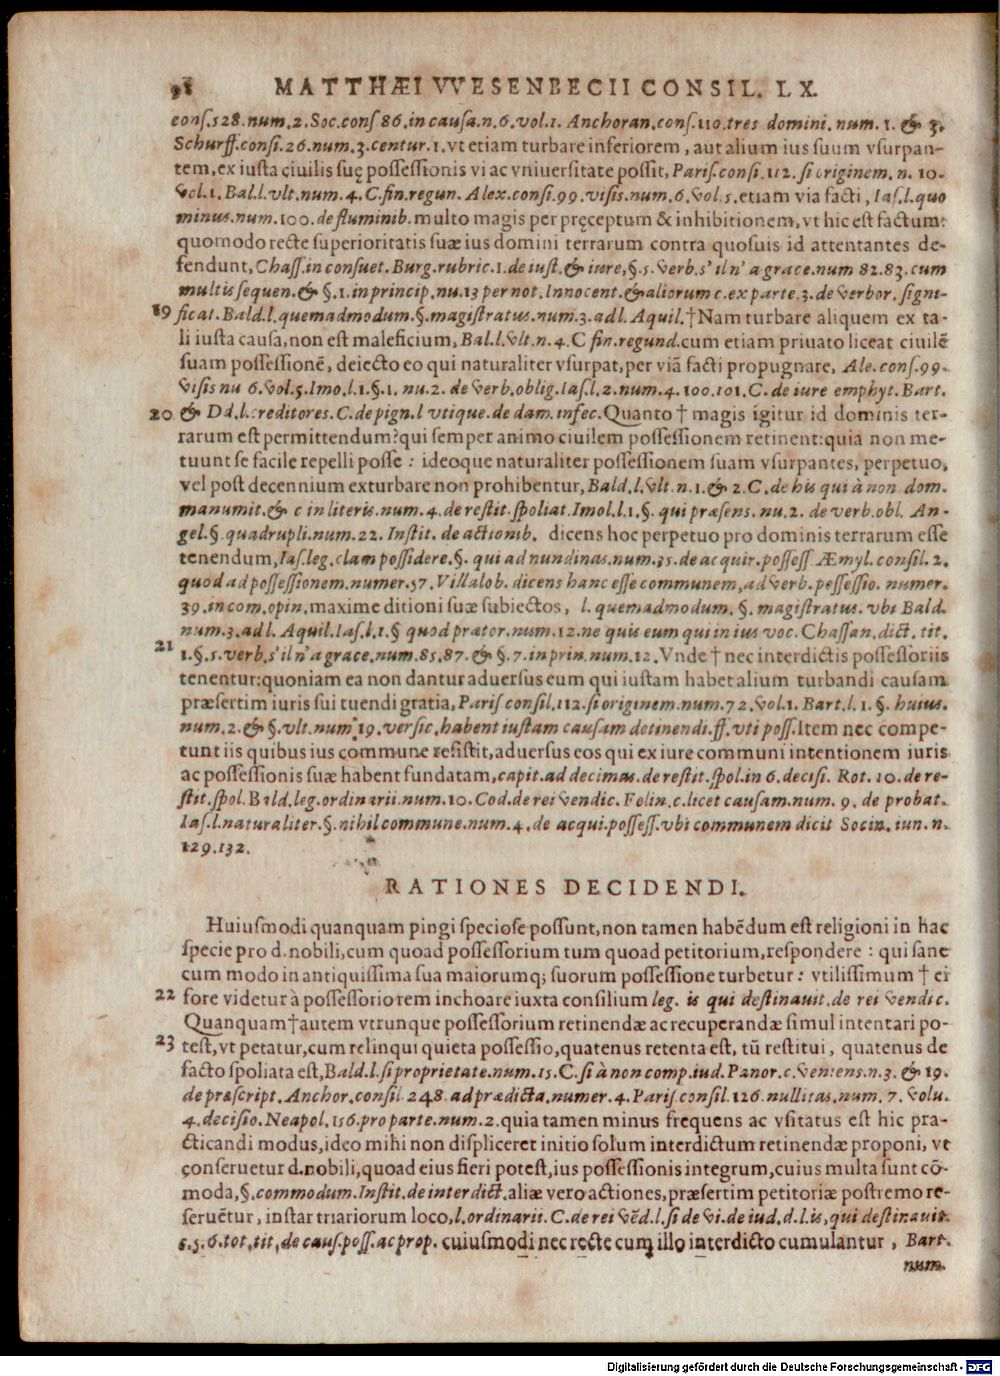 98 MATTHÆI VVESENBECII CONSIL. LX.
cons.528.num.2.Soc.cons 86.in causa.n.6.vol.1. Anchoran.cons.110.tres domini.num.1. & 3.
Schurff.consi.26.num.3.centur.1.vt etiam turbare inferiorem, aut alium ius suum vsurpan-
tem, ex iusta ciuilis suę possessionis vi ac vniuersitate possit, Paris.consi.112. si originem. n. 10.
vol.1. Bal.l.vlt.num.4. C.fin.regun. Alex.consi.99.visis.num.6.vol.5.etiam via facti, Ias.l.quo
minus.num.100.de fluminib.multo magis per pręceptum & inhibitionem, vt hic est factum:
quomodo recte superioritatis suæ ius domini terrarum contra quosuis id attentantes de-
fendunt, Chass.in consuet.Burg.rubric.1.de iust.& iure,§.5.verb.s'il n' a grace.num 82.83.cum
multis sequen.& §.1.in princip.nu.13 per not.Innocent.& aliorum c.ex parte.3.de verbor.signi-
89 ficat. Bald.l.quemadmodum.§.magistratus.num.3.ad l. Aquil.†Nam turbare aliquem ex ta-
li iusta causa, non est maleficium, Bal.l.vlt.n.4.C fin.regund.cum etiam priuato liceat ciuilē
suam possessionē, deiecto eo qui naturaliter vsurpat, per viā facti propugnare, Ale.cons.99.
visis nu 6.vol.5.Imo.l.1.§.1. nu.2. de verb.oblig.Ias.l.2.num.4.100.101.C.de iure emphyt.Bart.
20 & Dd.l.creditores.C.de pign.l vtique.de dam.infec.Quanto † magis igitur id dominis ter-
rarum est permittendum? qui semper animo ciuilem possessionem retinent: quia non me-
tuunt se facile repelli posse : ideoque naturaliter possessionem suam vsurpantes, perpetuo,
vel post decennium exturbare non prohibentur, Bald.l.vlt.n.1.& 2.C.de his qui à non dom.
manumit.& c in literis.num.4.de restit.spoliat.Imol.l.1.§. qui præsens. nu.2. de verb.obl. An-
gel.§.quadrupli.num.22. Instit. de actionib. dicens hoc perpetuo pro dominis terrarum esse
tenendum, Ias.leg.clam possidere.§. qui ad nundinas.num.35.de acquir.possess.Æmyl.consil.2.
quod ad possessionem.numer.57.Villalob. dicens hanc esse communem, ad verb.possessio. numer.
39.in com.opin.maxime ditioni suæ subiectos, l.quemadmodum.§. magistratus. vbi Bald.
num.3.ad l. Aquil.Ias.l.1.§ quod prætor.num.12.ne quis eum qui in ius voc. Chassan.dict. tit.
21 1.§.5.verb.s'il n' a grace.num.85.87.& §.7.in prin.num.12.Vnde † nec interdictis possessoriis
tenentur: quoniam ea non dantur aduersus eum qui iustam habet alium turbandi causam
præsertim iuris sui tuendi gratia, Paris consil.112.si originem.num.72.vol.1. Bart.l. 1.§. huius.
num.2.& §.vlt.num.19.versic.habent iustam causam detinendi.ff.vti poss.Item nec compe-
tunt iis quibus ius commune resistit, aduersus eos qui ex iure communi intentionem iuris
ac possessionis suæ habent fundatam, capit.ad decimas.de restit.spol.in 6.decisi. Rot.10.de re-
stit.spol.Bald.leg.ordinarii.num.10.Cod.de rei vendic. Felin.c.licet causam.num. 9. de probat.
Ias.l.naturaliter.§.nihil commune.num.4.de acqui.possess.vbi communem dicit Socin.iun.n.
129.132.
RATIONES DECIDENDI.
Huiusmodi quanquam pingi speciose possunt, non tamen habēdum est religioni in hac
specie pro d.nobili, cum quoad possessorium tum quoad petitorium, respondere : qui sane
cum modo in antiquissima sua maiorumq; suorum possessione turbetur : vtilissimum † ei
22 fore videtur à possessorio rem inchoare iuxta consilium leg. is qui destinauit.de rei vendic.
Quanquam†autem vtrunque possessorium retinendæ ac recuperandæ simul intentari po-
23 test, vt petatur, cum relinqui quieta possessio, quatenus retenta est, tū restitui, quatenus de
facto spoliata est, Bald.l.si proprietate.num.15.C.si à non comp.iud.Panor.c.veniens.n.3. & 19.
de præscript. Anchor.consil.248.ad prædicta.numer.4.Paris consil.126.nullitas.num.7. volu.
4.decisio.Neapol.156.pro parte.num.2.quia tamen minus frequens ac vsitatus est hic pra-
cticandi modus, ideo mihi non displiceret initio solum interdictum retinendæ proponi, vt
conseruetur d.nobili, quoad eius fieri potest, ius possessionis integrum, cuius multa sunt cō-
moda,§.commodum.Instit.de interdict.aliæ vero actiones, præsertim petitoriæ postremo re-
seruētur, instar triariorum loco, l.ordinarii.C.de rei vēd.l.si de vi.de iud.d.l.is, qui destinauit.
c.5.6.tot.tit.de caus.poss.ac prop. cuiusmodi nec recte cum illo interdicto cumulantur, Bart.
num.
Digitalisierung gefördert durch die Deutsche Forschungsgemeinschaft - DFG